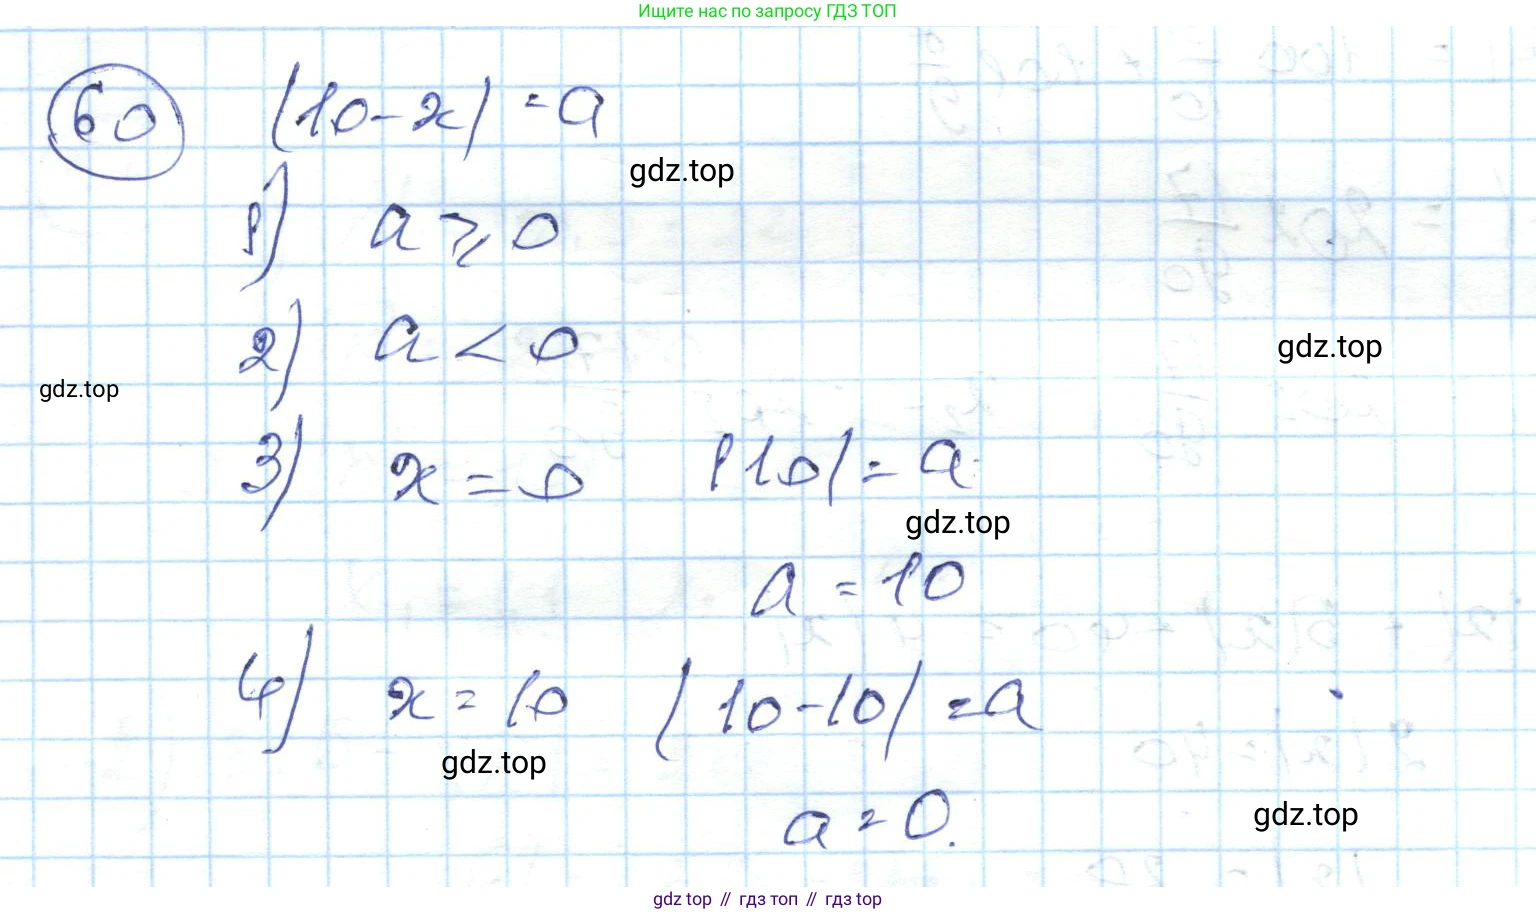 Ищите нас по запросу ГДЗ ТОП
60 |10-x| = a
gdz.top
1) a ⩾ 0
2) a < 0
gdz.top
gdz.top
3) x = 0 |10| = a
gdz.top
a = 10
4) x = 10 |10-10| = a
gdz.top
a = 0.
gdz.top
gdz top // гдз топ // гдз top